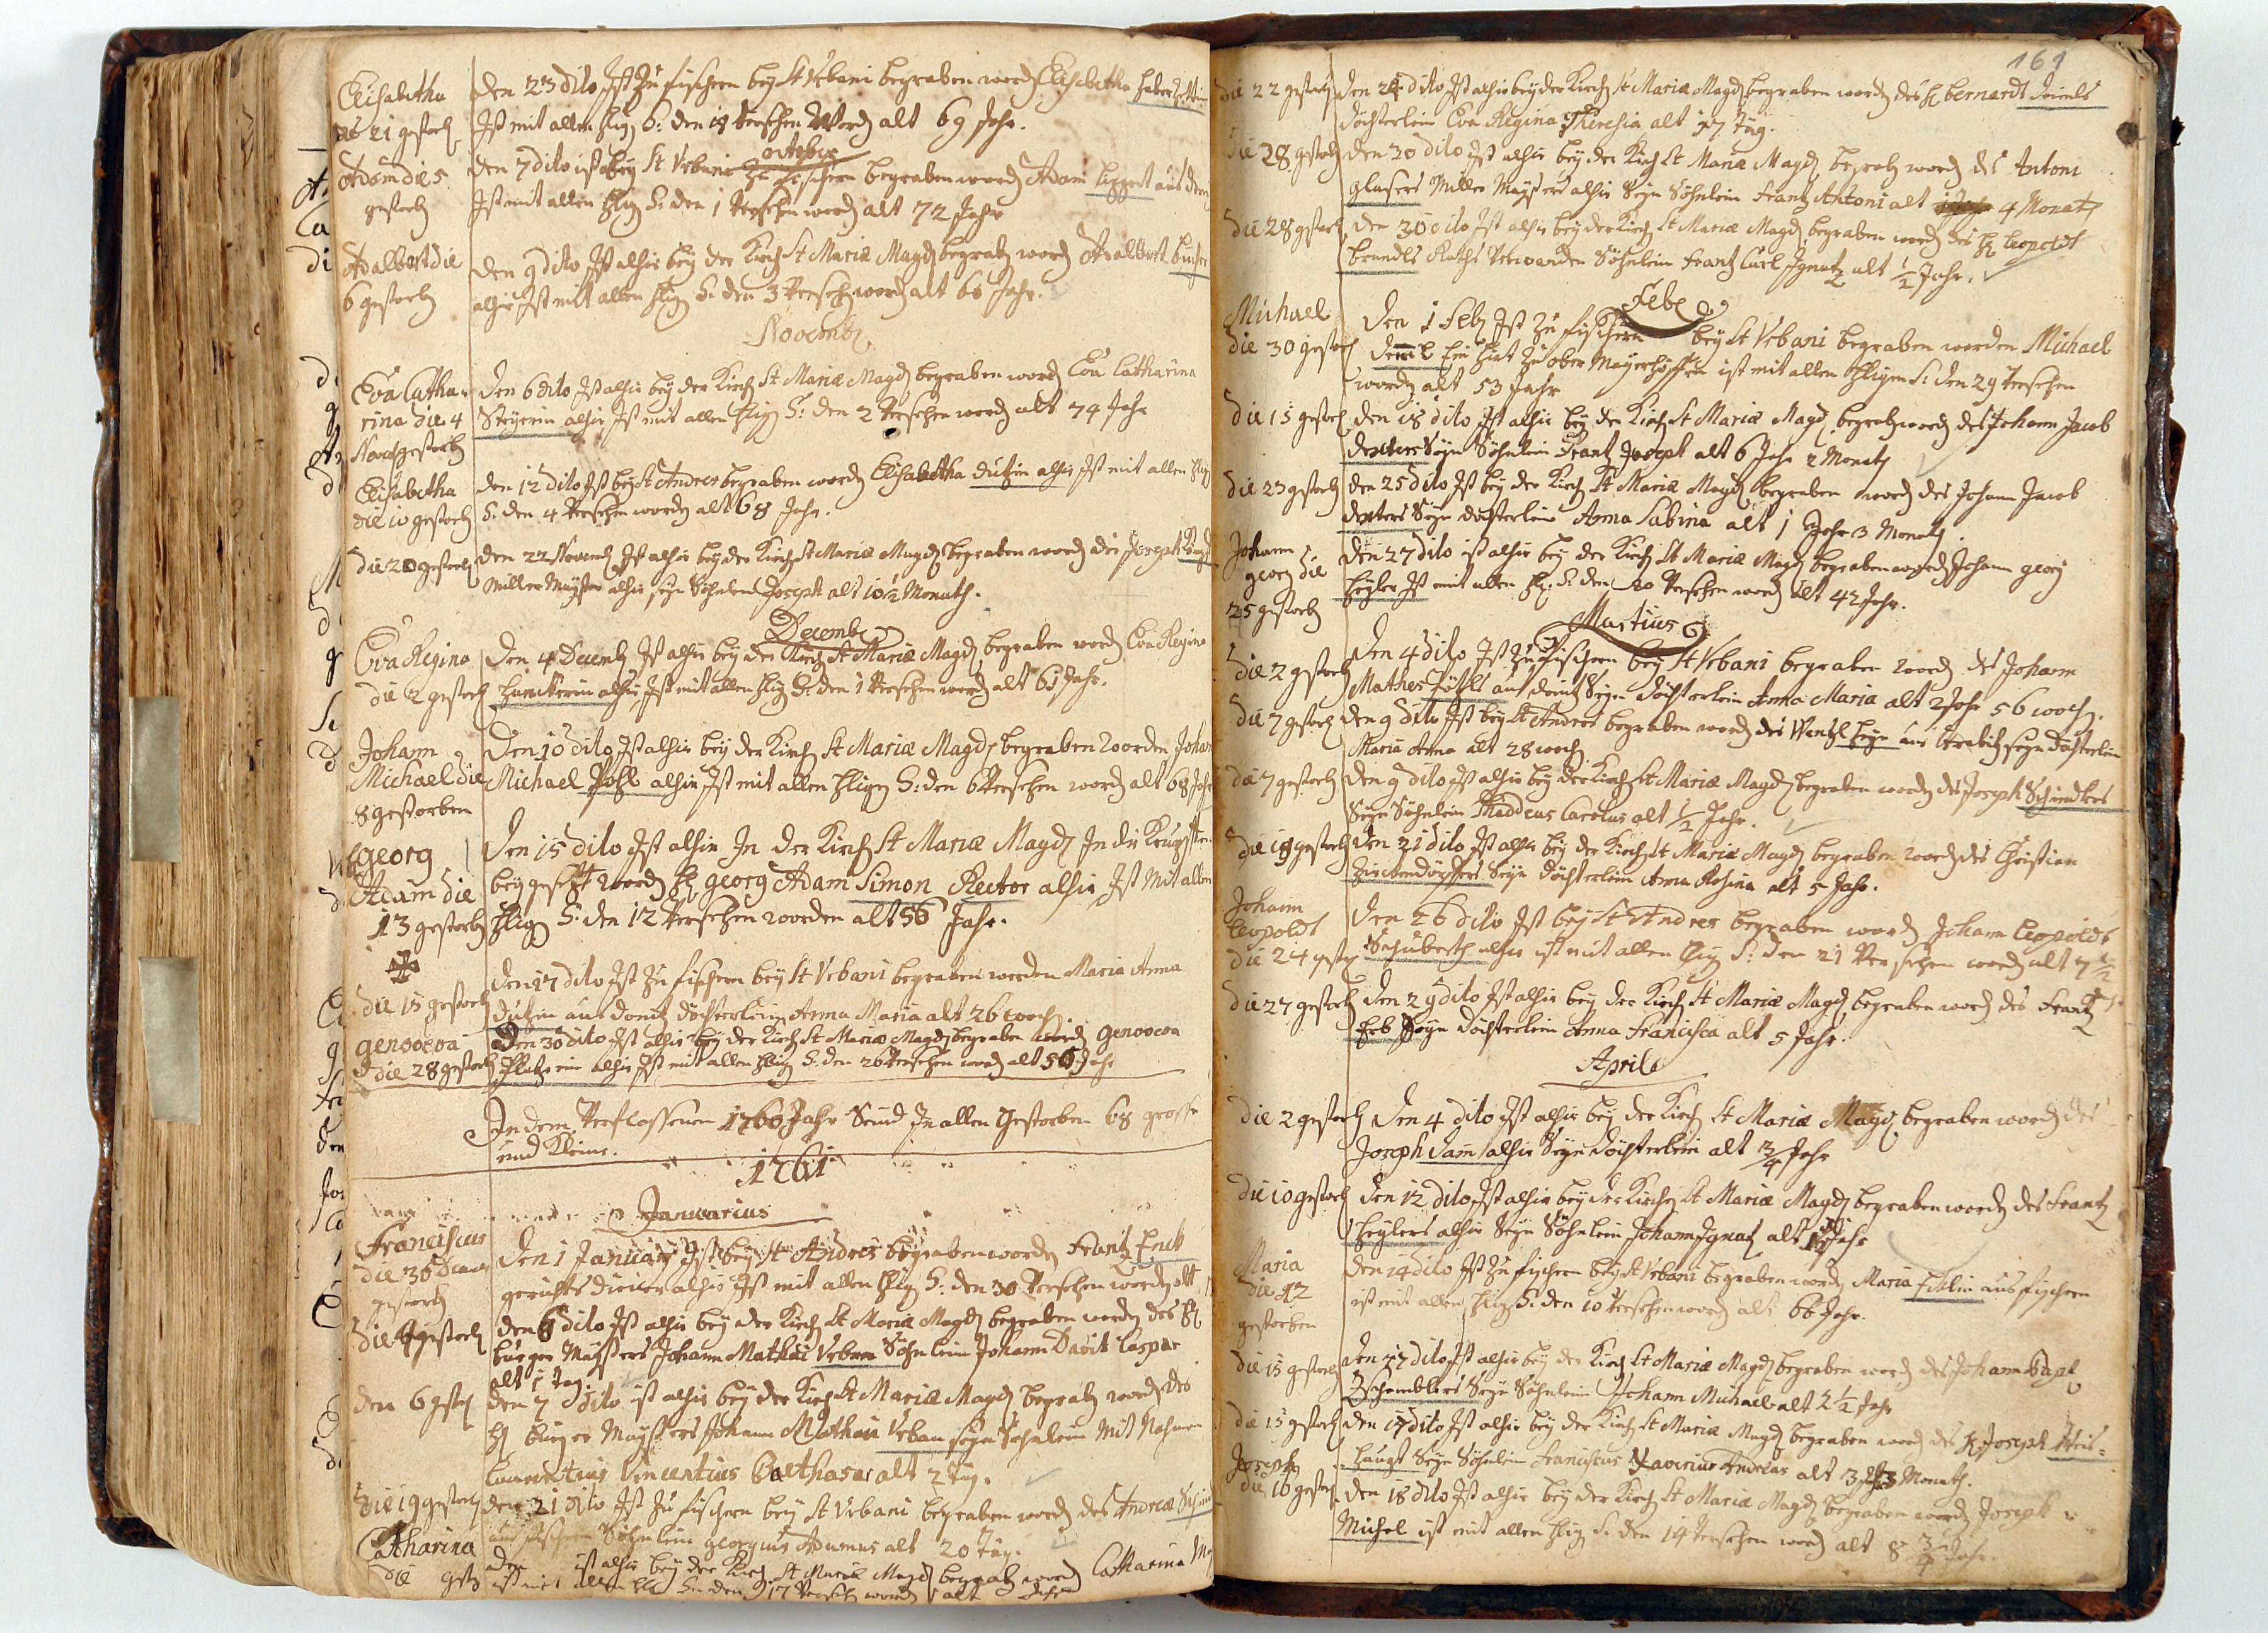 Elisabetha
die 21 gestorb
den 23 dito Ist Zu fischern bey St Vrbani begraben word Elisabetha
Ist mit allen Hlig S: den 18 Versehen Word alt 69 Jahr.
October
Adam die 5
gestorb
den 7 dito ist bey St Vrbani Zu fischern begraben word Adam
Ist mit allen Hlig S: den 1 Versehen word alt 72 Jahr
Adalbert die
6 gestorb
den 9 dito Ist alhir bey der Kirch St Mariæ Magd begrab word Adalbert
alhir Ist mit allen Hlig S: den 3 Verseh word alt 66 Jahr.
Novemb
Eva Catha-
rina die 4
Nov gestorb
den 6 dito Ist alhir bey der Kirch St Mariæ Magd begraben word Eva Catharina
Steyerin alhir Ist mit allen Hlig S: den 2 Versehen word alt 74 Jahr
Elisabetha
die 10 gestorb
den 12 dito Ist bey St Andres begraben word Elisabetha dutzin alhir Ist mit allen Hlig
S. den 4 Versehen worden alt 68 Jahr.
die 20 gestorb
den 22 Novemb Ist alhir bey der Kirch St Mariæ Magd begraben word des Joseph
Miller Mayster alhir seyn Söhnlein Joseph alt 10 1/2 Monath.
Decemb
Eva Regina
die 2 gestorb
den 4 Decemb Ist alhir bey der Kirch St Mariæ Magd begraben word Eva Regina
alhir Ist mit allen Hlig S: den 1 Versehen word alt 61 Jahr.
Johann
Michael die
8 gestorben
Den 10 dito Ist alhir bey der Kirch St Mariæ Magd begraben worden Johan
Michael Pohl alhir Ist mit allen Hlign S: den 6 Versehen word alt 68 Jahr
georg
Adam die
13 gestorb
Den 15 dito Ist alhir In der Kirch St Mariæ Magd In die
bey gesetzt word H georg Adam Simon Rector alhir Ist Mit allen
Hlig S: den 12 Versehen worden alt 56 Jahr.
die 15 gestorb
den 17 dito Ist Zu fischern bey St Vrbani begraben worden Maria Anna
dutzin aus donitz döchterlein Anna Maria alt 26 woch.
genovova
die 28 gestorb
Den 30 dito Ist alhir bey der Kirch St Mariæ Magd begraben word genovova
alhir Ist mit allen Hlig S. den 26 Versehen word alt 56 Jahr
In dem Verflossenen 1760 Jahr Seind In allen Gestorben 68 grosse
und Kleine.
1761
Januarius
Franciscus
die 30 Decemb
gestorb
Den 1 Januarj Ist bey St Andres begraben worden Frantz Enck
gerichts diener alhir Ist mit allen Hlig S: den 30 Versehen worden alt
die 4 gestorb
den 6 dito Ist alhir bey der Kirch St Mariæ Magd begraben worden des H
burger Maysters Johann Mathæi Vrban Söhnlein Johann Davit Caspar
alt 1 tag.
den 6 gestorb
den 7 dito ist alhir bey der Kirch St Mariæ Magd begrab word des
H burger Maysters Johann Mathæi Vrban seyn Söhnlein Mit Nahmen
Vincentius Balthasar alt 2 tag.
die 19 gestorb
den 21 dito Ist Zu fischern bey St Vrbani begraben word des Andreæ
Söhnlein georgius Adamus alt 20 tag.
Catharina
die gestorb
den ist alhir bey der Kirch St Mariæ Magd begrab word Catharina
ist mit allen Hlig S: den 17 Verseh word alt Jahr
161
die 22 gestorb
den 24 dito Ist alhir bey der Kirch St Mariæ Magd begraben worden des H bernardt
döchterlein Eva Regina Theresia alt 17 tag.
die 28 gestorb
den 30 dito Ist alhir bey der Kirch St Mariæ Magd begrab word des Antoni
glasers Miller Maysters alhir Seyn Söhnlein Frantz Antoni alt 4 Monath
die 28 gestorb
den 30 dito Ist alhir bey der Kirch St Mariæ Magd begraben word des H leopoldt
brendls Raths Verwanden Söhnlein Frantz Carl Ignatz alt 1/2 Jahr.
Feb
Michael
die 30 gestorb
Den 1 Feb Ist Zu fischern bey St Vrbani begraben worden Michael
Ein Hirt Zu ober Mayerhöffen ist mit allen Hligen S: den 29 Versehen
worden alt 53 Jahr
die 15 gestorb
den 18 dito Ist alhir bey der Kirch St Mariæ Magd begrab word des Johann Jacob
dexters Seyn Söhnlein Frantz Joseph alt 6 Jahr 2 Monath
die 23 gestorb
den 25 dito Ist bey der Kirch St Mariæ Magd begraben word des Johann Jacob
dexters Seyn döchterlein Anna Sabina alt 1 Jahr 3 Monath.
Johann
georg die
25 gestorb
den 27 dito ist alhir bey der Kirch St Mariæ Magd begraben word Johann georg
Ist mit allen Hl. S. den 20 Versehen word alt 42 Jahr.
Martius
die 2 gestorb
Den 4 dito Ist Zu fischern bey St Vrbani begraben word des Johann
Mathes aus donitz Seyn döchterlein Anna Maria alt 2 Jahr 5 6 woch.
die 7 gestorb
den 9 dito Ist bey St Andres begraben word des Wentzl seyn döchterlein
Maria Anna alt 28 woch
die 7 gestorb
den 9 dito Ist alhir bey der Kirch St Mariæ Magd begraben word des Joseph
Seyn Söhnlein Thaddeus Carolus alt 1/2 Jahr.
die 19 gestorb
den 21 dito Ist alhir bey der Kirch St Mariæ Magd begraben word des Christian
Seyn döchterlein Anna Rosina alt 5 Jahr.
Johann
leopoldt
die 24 gestorb
den 26 dito Ist bey St Andres begraben word Johann leopoldt
Schuberth alhir ist mit allen Hlig S: den 21 Versehen word alt 7 1/2
die 27 gestorb
den 29 dito Ist alhir bey der Kirch St Mariæ Magd begraben word des Frantz
Erb Seyn döchterlein Anna Francisca alt 5 Jahr.
April
die 2 gestorb
den 4 dito Ist alhir bey der Kirch St Mariæ Magd begraben word des
Joseph dam alhir Seyn döchterlein alt 3/4 Jahr
die 10 gestorb
den 12 dito Ist alhir bey der Kirch St Mariæ Magd begraben word des Frantz
alhir Seyn Söhnlein Johann Ignatz alt Jahr
Maria
die 12
gestorben
den 14 dito Ist Zu fischern bey St Vrbani begraben word Maria aus fischern
ist mit allen Hlig S: den 10 Versehen word alt 66 Jahr.
die 15 gestorb
den 17 dito Ist alhir bey der Kirch St Mariæ Magd begraben word des Johann Bapt
Seyn Söhnlein Johann Michael alt 2 1/2 Jahr
die 15 gestorb
den 17 dito Ist alhir bey der Kirch St Mariæ Magd begraben word des H. Joseph
Seyn Söhnlein Franciscus Xaverius Andreas alt 3 Monath.
Joseph
die 16 gestorb
den 18 dito Ist alhir bey der Kirch St Mariæ Magd begraben word Joseph
Michel ist mit allen Hlig S. den 14 Versehen word alt 8 3/4 Jahr.